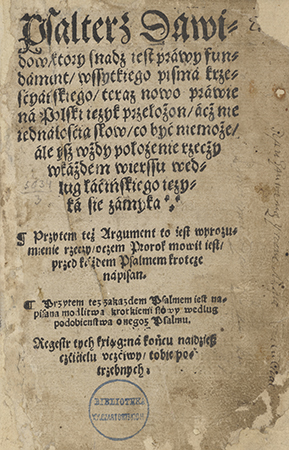 Psalterz Dawi-
dow/ktory snadz iest prawy fun-
dament/ wssytkiego pisma krze-
sciyáńskiego/ teraz nowo práwie
ná Polski ięzyk przełożon/ ácż nie
iednáłością słow/ co być niemoże/
ále ysz wżdy położenie rzeczy
w káżdem wierssu wed-
lug Łácińskiego ięzy-
ká sie zámyka
¶ Przytem też Argument to iest wyrozu-
mienie rzeczy/oczem Prorok mowił iest/
przed każdem Psalmem krotcze
nápisan.
¶ Przytem tez zakazdem Psalmem iest na-
pisana modlitwa krotkiemi słowy według
podobieństwa onegoz Psalmu.
Regestr tych ksiąg:ná końcu naidziesz
cżciciełu vczciwy/ tobie po-
trzebnych.
BIBLIOTEK